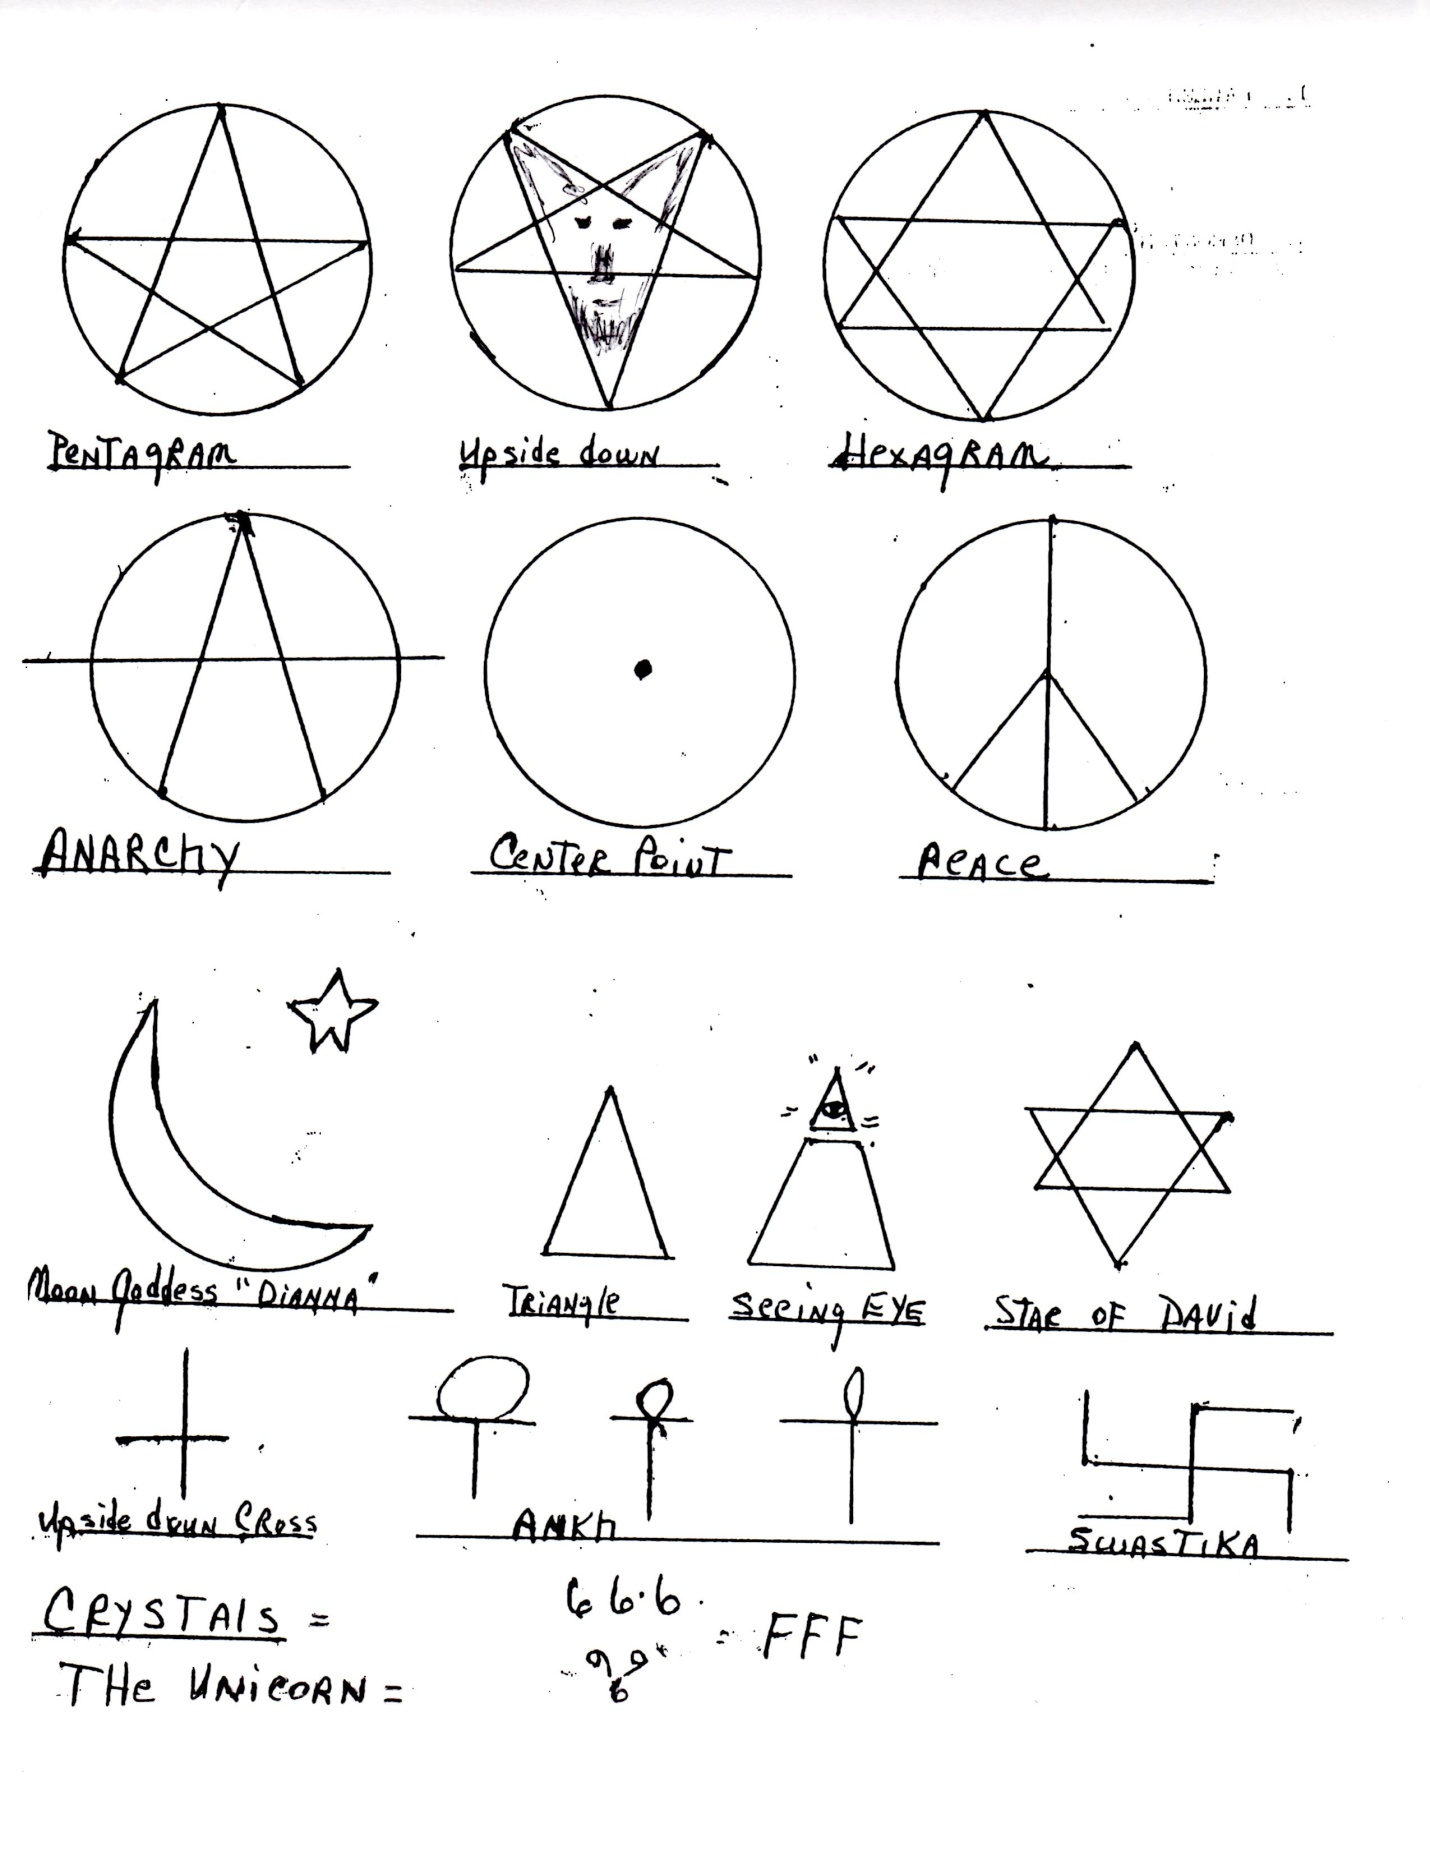 PENTAGRAM
Upside down
HEXAGRAM
ANARCHY
CENTER POINT
PEACE
MOON Goddess "DIANNA"
TRIANGLE
SEEING EYE
STAR OF DAVID
Upside down CROSS
ANKH
SWASTIKA
CRYSTALS =
THE UNICORN =
6 6.6.
= FFF